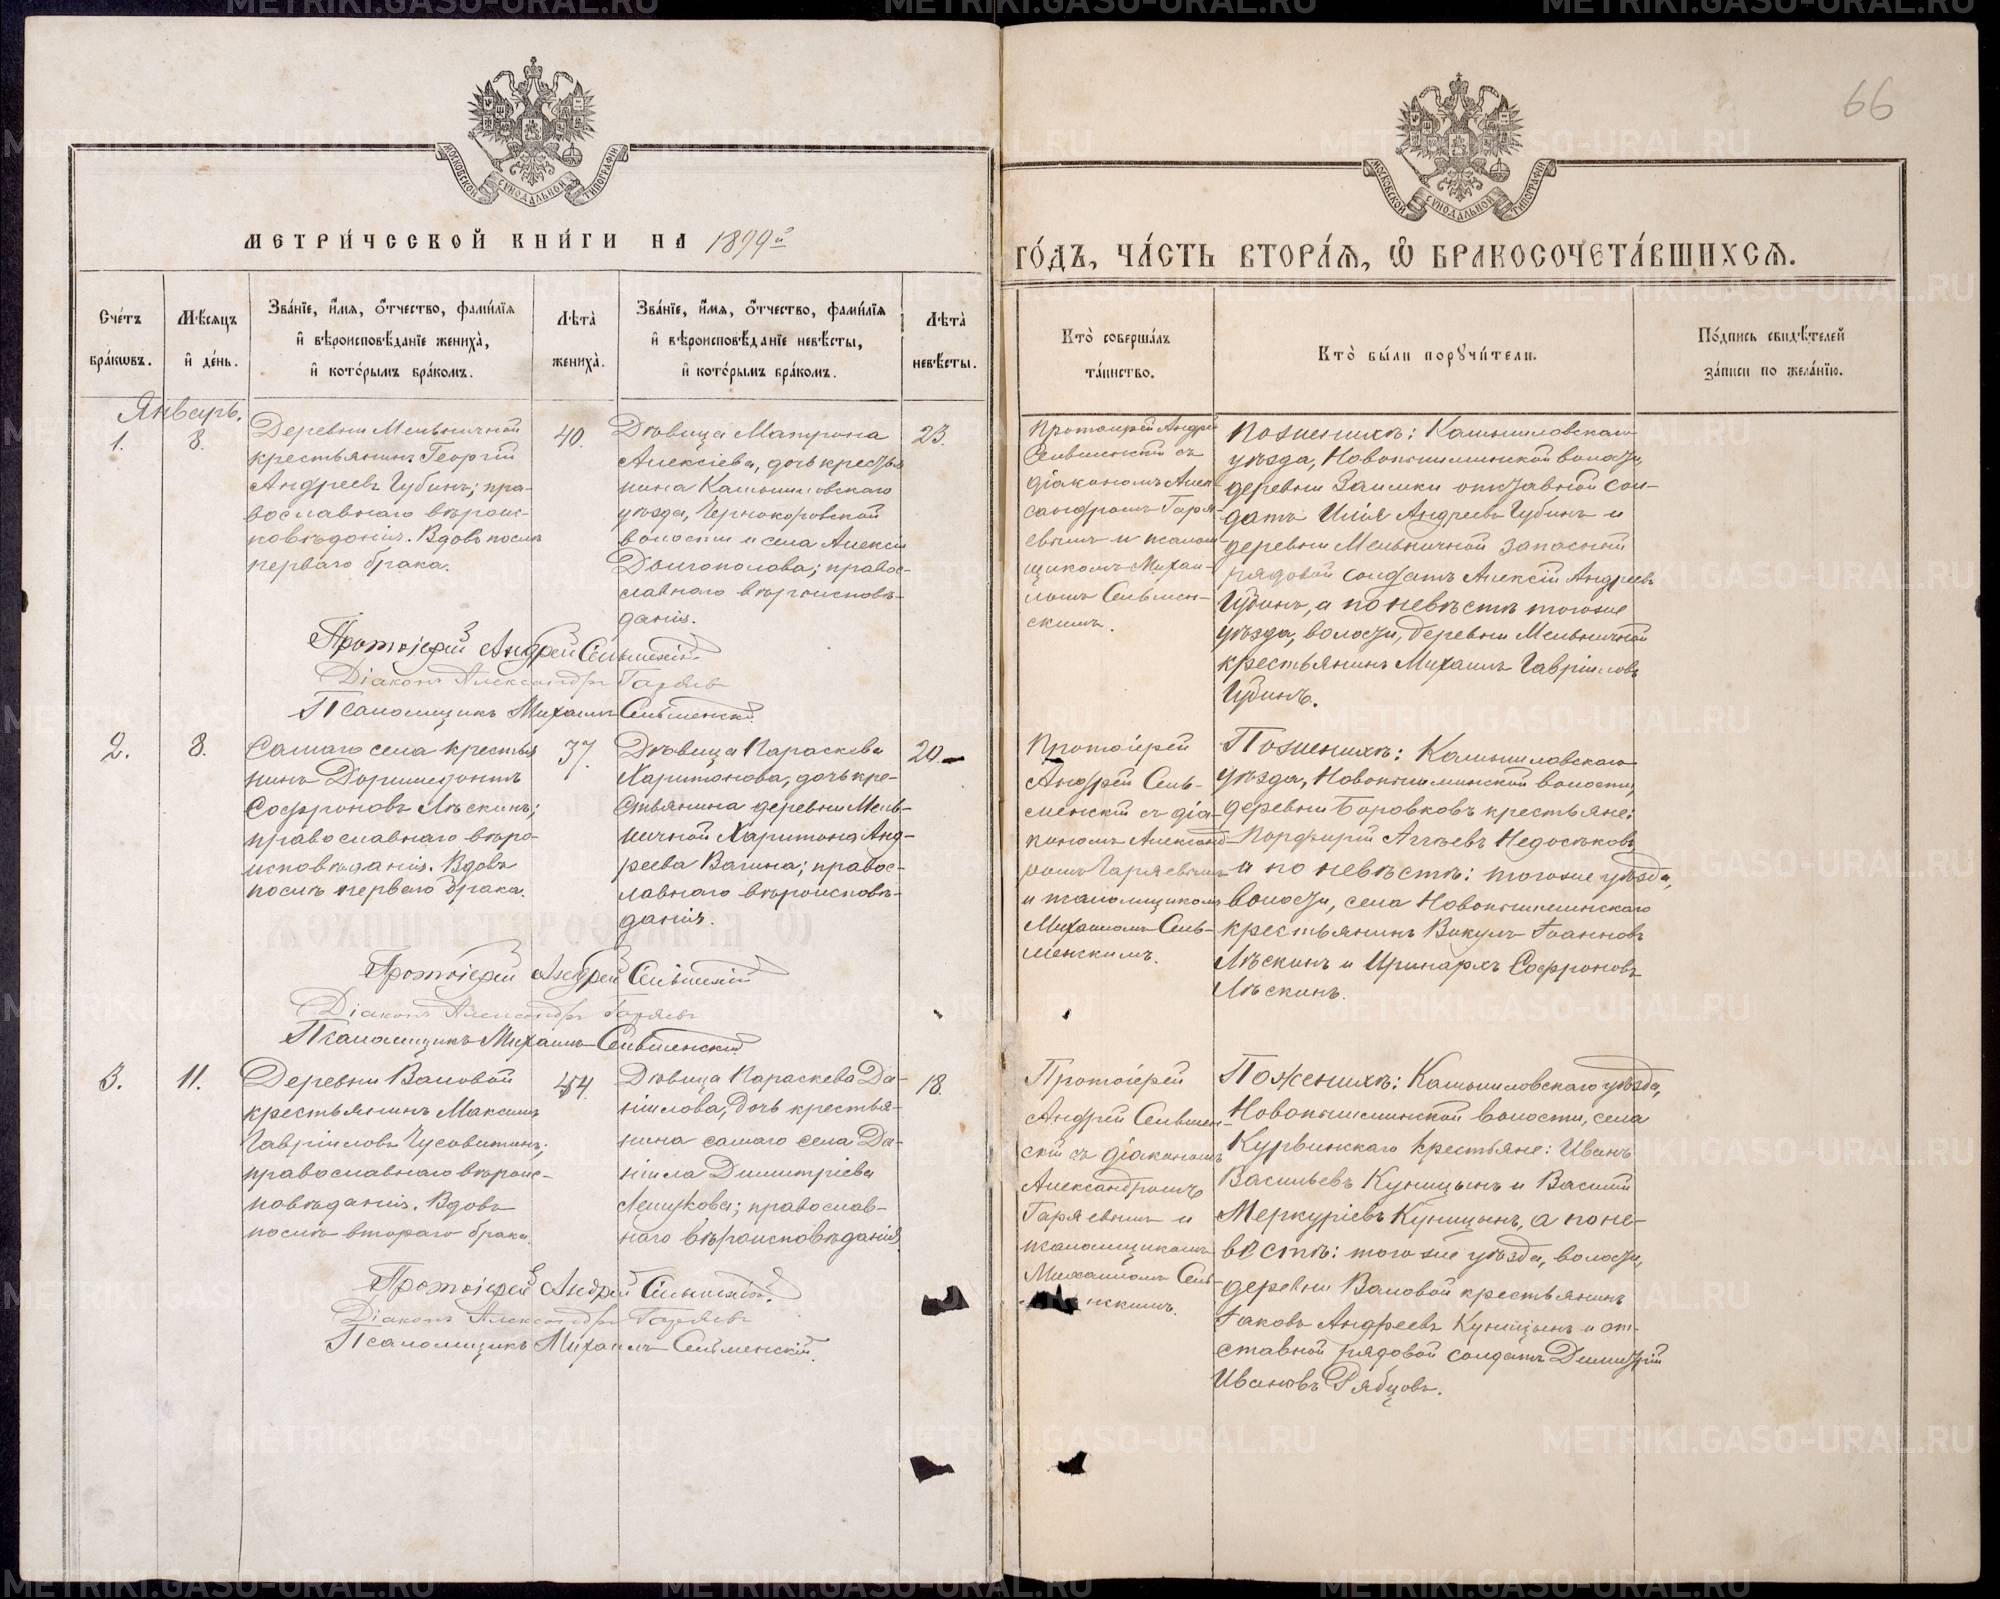 66
МОСКОВСКОЙ СУНОДАЛЬНОЙ ТИПОГРАФІИ
МОСКОВСКОЙ СУНОДАЛЬНОЙ ТИПОГРАФІИ
МЕТРИ́ЧЕСКОЙ КНИ́ГИ НА 1899й
ГО́ДЪ, ЧА́СТЬ ВТОРА́Я, Ѿ БРАКОСОЧЕТА́ВШИХСЯ.
Сче́тъ бра́кωвъ.
Мѣ́сяцъ и҆ де́нь.
Зва́нїе, и҆́мя, ѻ҆́тчество, фами́лїя
и҆ вѣроисповѣ́данїе жениха̀,
и҆ кото́рымъ бра́комъ.
Лѣта̀ жениха̀.
Зва́нїе, и҆́мя, ѻ҆́тчество, фами́лїя
и҆ вѣроисповѣ́данїе невѣ́сты,
и҆ кото́рымъ бра́комъ.
Лѣта̀ невѣ́сты.
Кто̀ соверша́лъ
та́инство.
Кто̀ бы́ли порꙋчи́тели.
По́дпись свидѣ́телей
за́писи по жела́нїю.
Январь.
1.
8.
Деревни Мельничной
крестьянинъ Георгій
Андреевъ Губинъ; пра-
вославнаго вѣроис-
повѣданія. Вдовъ послѣ
перваго брака.
40.
Дѣвица Матрона
Алексіева, дочь крестья
нина Камышловскаго
уѣзда, Чернокоровской
волости и села Алексія
Долгополова; правос-
лавнаго вѣроисповѣ-
данія.
23.
Протоіерей Андрей
Сельменскій съ
діакономъ Алек-
сандромъ Гаря-
евымъ и псалом-
щикомъ Михаи-
ломъ Сельмен-
скимъ.
По женихѣ: Камышловскаго
уѣзда, Новопышминской волости,
деревни Заимки отставной сол-
датъ Илія Андреевъ Губинъ и
деревни Мельничной запасный
рядовой солдатъ Алексій Андреевъ
Губинъ, а по невѣстѣ того же
уѣзда, волости, деревни Мельничной
крестьянинъ Михаилъ Гавріиловъ
Губинъ.
Протоіерей Андрей Сельменскій
Діаконъ Александръ Гаряевъ
Псаломщикъ Михаилъ Сельменскій
2.
8.
Самаго села крестья
нинъ Доримедонтъ
Софроновъ Лѣскинъ;
православнаго вѣро-
исповѣданія. Вдовъ
послѣ перваго брака.
37.
Дѣвица Параскева
Харитонова, дочь кре-
стьянина деревни Мель-
ничной Харитона Анд-
реева Вагина; правос-
лавнаго вѣроисповѣ-
данія.
20
Протоіерей
Андрей Сель-
менскій съ діа-
кономъ Александ-
ромъ Гаряевымъ
и псаломщикомъ
Михаиломъ Сель-
менскимъ.
По женихѣ: Камышловскаго
уѣзда, Новопышминской волости,
деревни Боровковъ крестьяне:
Порфирій Аггѣевъ Недосѣковъ
и по невѣстѣ: того же уѣзда,
волости, села Новопышминскаго
крестьянинъ Викулъ Іоанновъ
Лѣскинъ и Иринархъ Софроновъ
Лѣскинъ.
Протоіерей Андрей Сельменскій
Діаконъ Александръ Гаряевъ
Псаломщикъ Михаилъ Сельменскій
3.
11.
Деревни Валовой
крестьянинъ Максимъ
Гавріиловъ Гусовитинъ;
православнаго вѣроис-
повѣданія. Вдовъ
послѣ втораго брака.
54.
Дѣвица Параскева Да-
ніилова, дочь крестья-
нина самаго села Да-
ніила Димитріева
православ-
наго вѣроисповѣданія.
18.
Протоіерей
Андрей Сельмен-
скій съ діакономъ
Александромъ
Гаряевымъ и
псаломщикомъ
Михаиломъ Сель-
нскимъ.
По женихѣ: Камышловскаго уѣзда,
Новопышминской волости, села
Курьинскаго крестьяне: Иванъ
Васильевъ Куницынъ и Василій
Меркуріевъ Куницынъ, а по не-
вѣстѣ: того же уѣзда, волости,
деревни Валовой крестьянинъ
Іаковъ Андреевъ Куницынъ и от-
ставной рядовой солдатъ Димитрій
Ивановъ Рябцовъ.
Протоіерей Андрей Сельменскій
Діаконъ Александръ Гаряевъ
Псаломщикъ Михаилъ Сельменскій.
METRIKI.GASO-URAL.RU